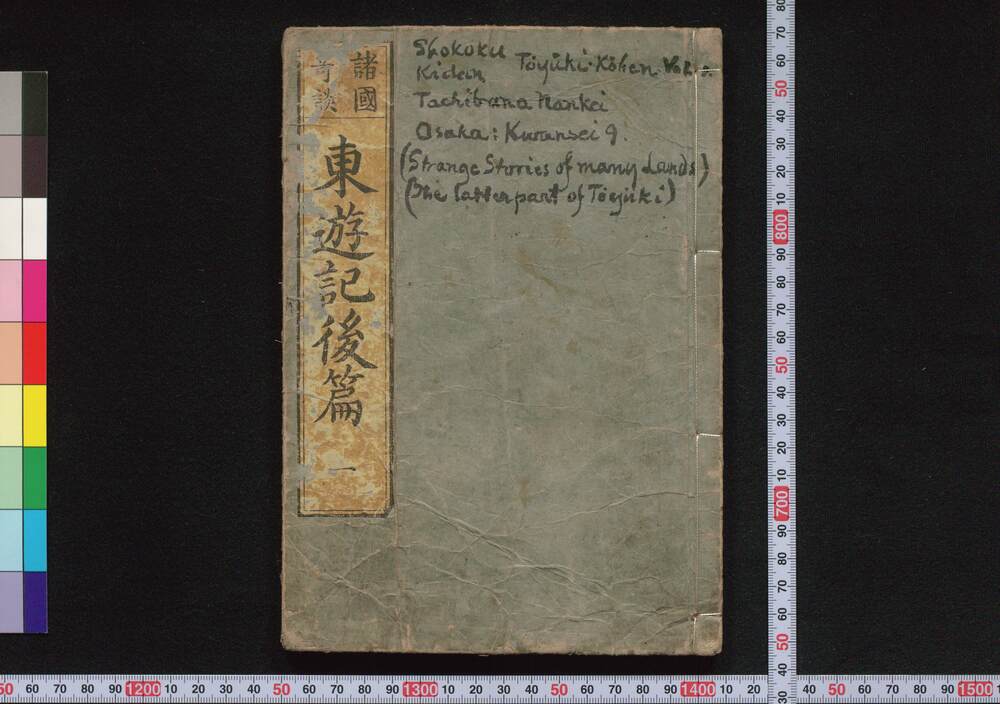 諸國
奇談
東遊記後篇
一
Shokoku
Kidan Tōyūki-Kōhen Vol.
Tachibana Nankei
Osaka: Kwansei 9.
(Strange Stories of many Lands)
(The latter part of Tōyūki)
50 60 70 80 90 1200 10 20 30 40 50 60 70 80 90 1300 10 20 30 40 50 60 70 80 90 1400 10 20 30 40 50 60 70 80 90 1500
80 70 60 50 40 30 20 10 800 90 80 70 60 50 40 30 20 10 700 90 80 70 60 50 40 30